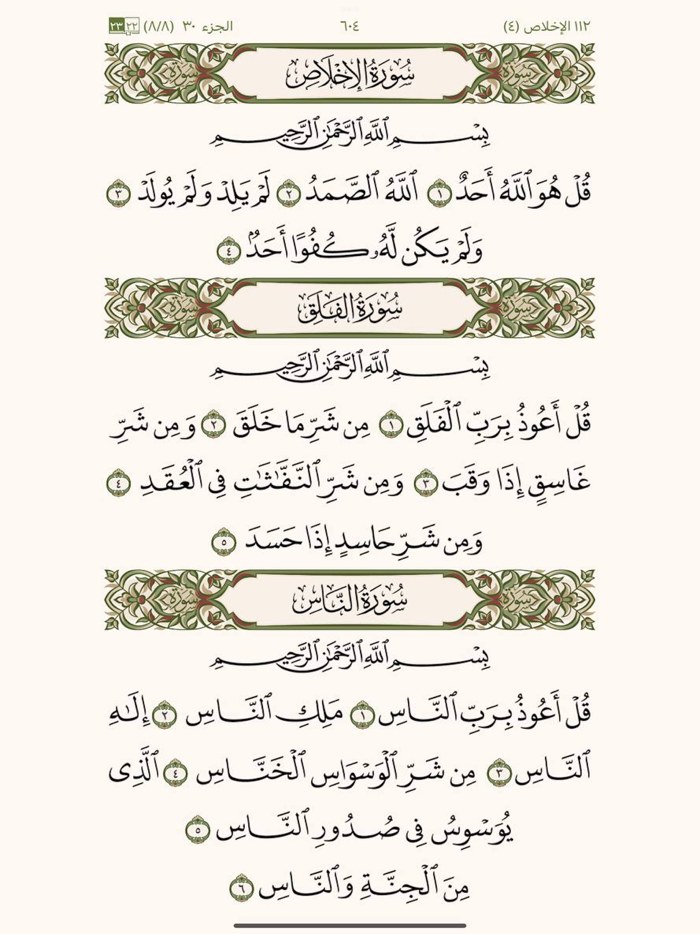 ١١٢ الإخلاص (٤) ٦٠٤ الجزء ٣٠ (٨/٨) ٢٢ ٢٣
سورة سُورَةُ الإِخْلَاصِ سورة
بِسْمِ اللَّهِ الرَّحْمَٰنِ الرَّحِيمِ
قُلْ هُوَ ٱللَّهُ أَحَدٌ ١ ٱللَّهُ ٱلصَّمَدُ ٢ لَمْ يَلِدْ وَلَمْ يُولَدْ ٣
وَلَمْ يَكُن لَّهُۥ كُفُوًا أَحَدٌۢ ٤
سورة سُورَةُ الفَلَقِ سورة
بِسْمِ اللَّهِ الرَّحْمَٰنِ الرَّحِيمِ
قُلْ أَعُوذُ بِرَبِّ ٱلْفَلَقِ ١ مِن شَرِّ مَا خَلَقَ ٢ وَمِن شَرِّ
غَاسِقٍ إِذَا وَقَبَ ٣ وَمِن شَرِّ ٱلنَّفَّٰثَٰتِ فِى ٱلْعُقَدِ ٤
وَمِن شَرِّ حَاسِدٍ إِذَا حَسَدَ ٥
سورة سُورَةُ النَّاسِ سورة
بِسْمِ اللَّهِ الرَّحْمَٰنِ الرَّحِيمِ
قُلْ أَعُوذُ بِرَبِّ ٱلنَّاسِ ١ مَلِكِ ٱلنَّاسِ ٢ إِلَٰهِ
ٱلنَّاسِ ٣ مِن شَرِّ ٱلْوَسْوَاسِ ٱلْخَنَّاسِ ٤ ٱلَّذِى
يُوَسْوِسُ فِى صُدُورِ ٱلنَّاسِ ٥
مِنَ ٱلْجِنَّةِ وَٱلنَّاسِ ٦